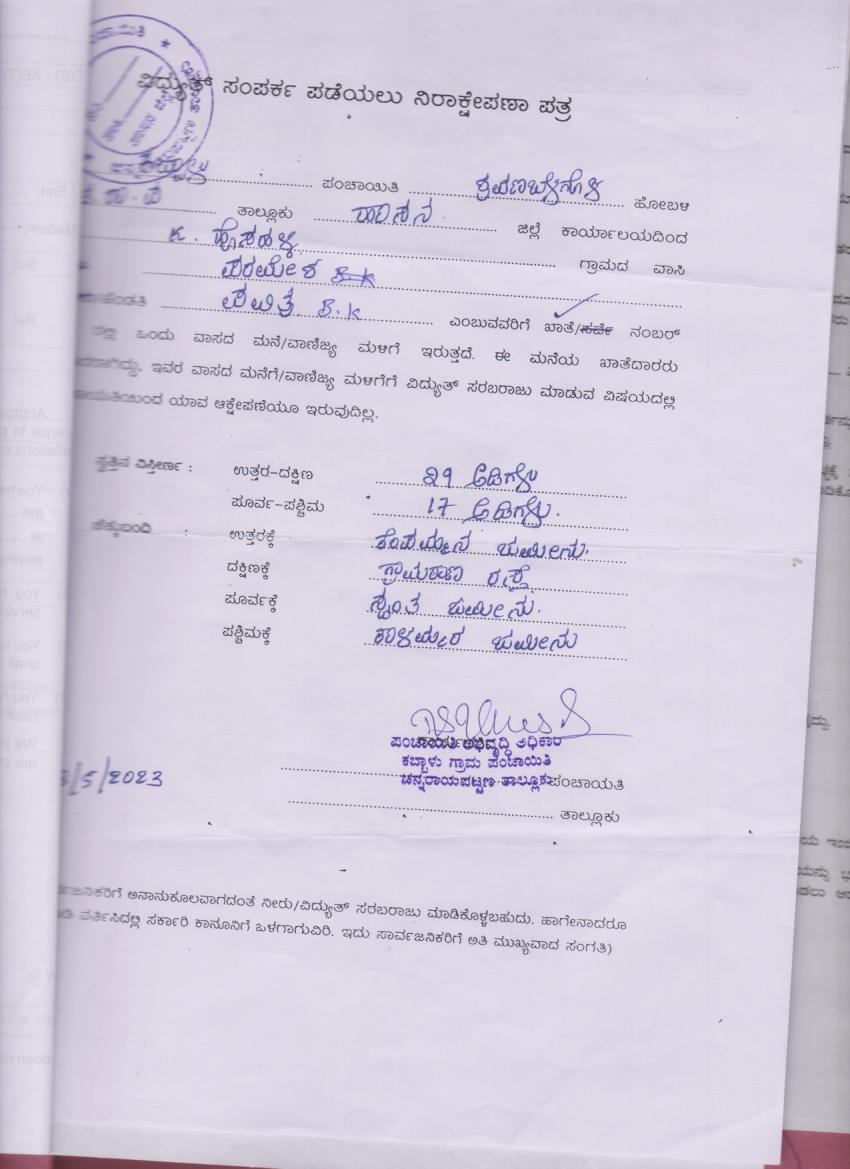 ವಿದ್ಯುತ್ ಸಂಪರ್ಕ ಪಡೆಯಲು ನಿರಾಕ್ಷೇಪಣಾ ಪತ್ರ
ಕಬ್ಬಾಳು ಪಂಚಾಯಿತಿ ಶ್ರವಣಬೆಳಗೊಳ ಹೋಬಳಿ
ತಾಲ್ಲೂಕು ಹಾಸನ ಜಿಲ್ಲೆ ಕಾರ್ಯಾಲಯದಿಂದ
K. ಹೊಸಹಳ್ಳಿ ಗ್ರಾಮದ ವಾಸಿ
ಪರಮೇಶ B.K
ಪವಿತ್ರ B.K ಎಂಬುವವರಿಗೆ ಖಾತೆ/ಸರ್ವೆ ನಂಬರ್
ಒಂದು ವಾಸದ ಮನೆ/ವಾಣಿಜ್ಯ ಮಳಿಗೆ ಇರುತ್ತದೆ. ಈ ಮನೆಯ ಖಾತೆದಾರರು
ಇವರ ವಾಸದ ಮನೆಗೆ/ವಾಣಿಜ್ಯ ಮಳಿಗೆಗೆ ವಿದ್ಯುತ್ ಸರಬರಾಜು ಮಾಡುವ ವಿಷಯದಲ್ಲಿ
ಯಾವ ಆಕ್ಷೇಪಣೆಯೂ ಇರುವುದಿಲ್ಲ.
ಸ್ವತ್ತಿನ ವಿಸ್ತೀರ್ಣ : ಉತ್ತರ-ದಕ್ಷಿಣ 29 ಅಡಿಗಳು
ಪೂರ್ವ-ಪಶ್ಚಿಮ 17 ಅಡಿಗಳು.
ಚೆಕ್ಕುಬಂದಿ : ಉತ್ತರಕ್ಕೆ ಕೆಂಪಮ್ಮನ ಜಮೀನು.
ದಕ್ಷಿಣಕ್ಕೆ ಗ್ರಾಮಠಾಣ ರಸ್ತೆ
ಪೂರ್ವಕ್ಕೆ ಸ್ವಂತ ಜಮೀನು.
ಪಶ್ಚಿಮಕ್ಕೆ ಜಮೀನು
ಪಂಚಾಯಿತಿ ಅಭಿವೃದ್ಧಿ ಅಧಿಕಾರಿ
ಕಬ್ಬಾಳು ಗ್ರಾಮ ಪಂಚಾಯಿತಿ
ಚನ್ನರಾಯಪಟ್ಟಣ ತಾಲ್ಲೂಕು ಪಂಚಾಯತಿ
3/5/2023
ತಾಲ್ಲೂಕು
ಅನಾನುಕೂಲವಾಗದಂತೆ ನೀರು/ವಿದ್ಯುತ್ ಸರಬರಾಜು ಮಾಡಿಕೊಳ್ಳಬಹುದು. ಹಾಗೇನಾದರೂ
ವರ್ತಿಸಿದಲ್ಲಿ ಸರ್ಕಾರಿ ಕಾನೂನಿಗೆ ಒಳಗಾಗುವಿರಿ. ಇದು ಸಾರ್ವಜನಿಕರಿಗೆ ಅತಿ ಮುಖ್ಯವಾದ ಸಂಗತಿ)